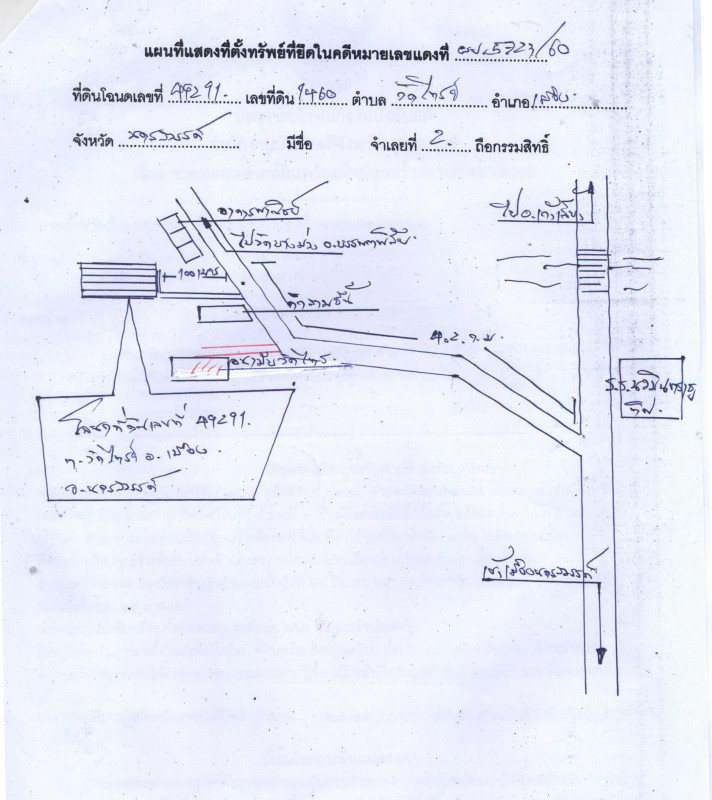 แผนที่แสดงที่ตั้งทรัพย์ที่ยึดในคดีหมายเลขแดงที่ ผบ.5723/60
ที่ดินโฉนดเลขที่ 49291. เลขที่ดิน 1460 ตำบล วัดไทรย์ อำเภอ เมือง.
จังหวัด นครสวรรค์ มีชื่อ จำเลยที่ 2 ถือกรรมสิทธิ์
อาคารพาณิชย์
ไป อ.เก้าเลี้ยว
ไปวัดบางม่วง อ.บรรพตพิสัย
100 เมตร
ค้าสามชั้น
4.2 ก.ม
อนามัยวัดไทร.
ร.ร.นวมินทราชู
ทิศ.
โฉนดที่ดินเลขที่ 49291.
ต.วัดไทรย์ อ.เมือง
จ.นครสวรรค์
เข้าเมืองนครสวรรค์